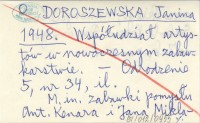 DOROSZEWSKA Janina
1948. Współudział artys-
tów w nowoczesnym zabaw-
karstwie. - Odrodzenie
5, nr 34, il.
M. in. zabawki pomysłu
Ant. Kenara i Jana Mikla-